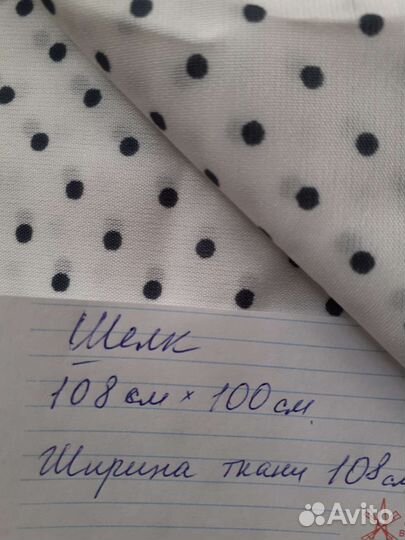 Шелк
108 см × 100 см
Ширина ткани 108 см
Avito